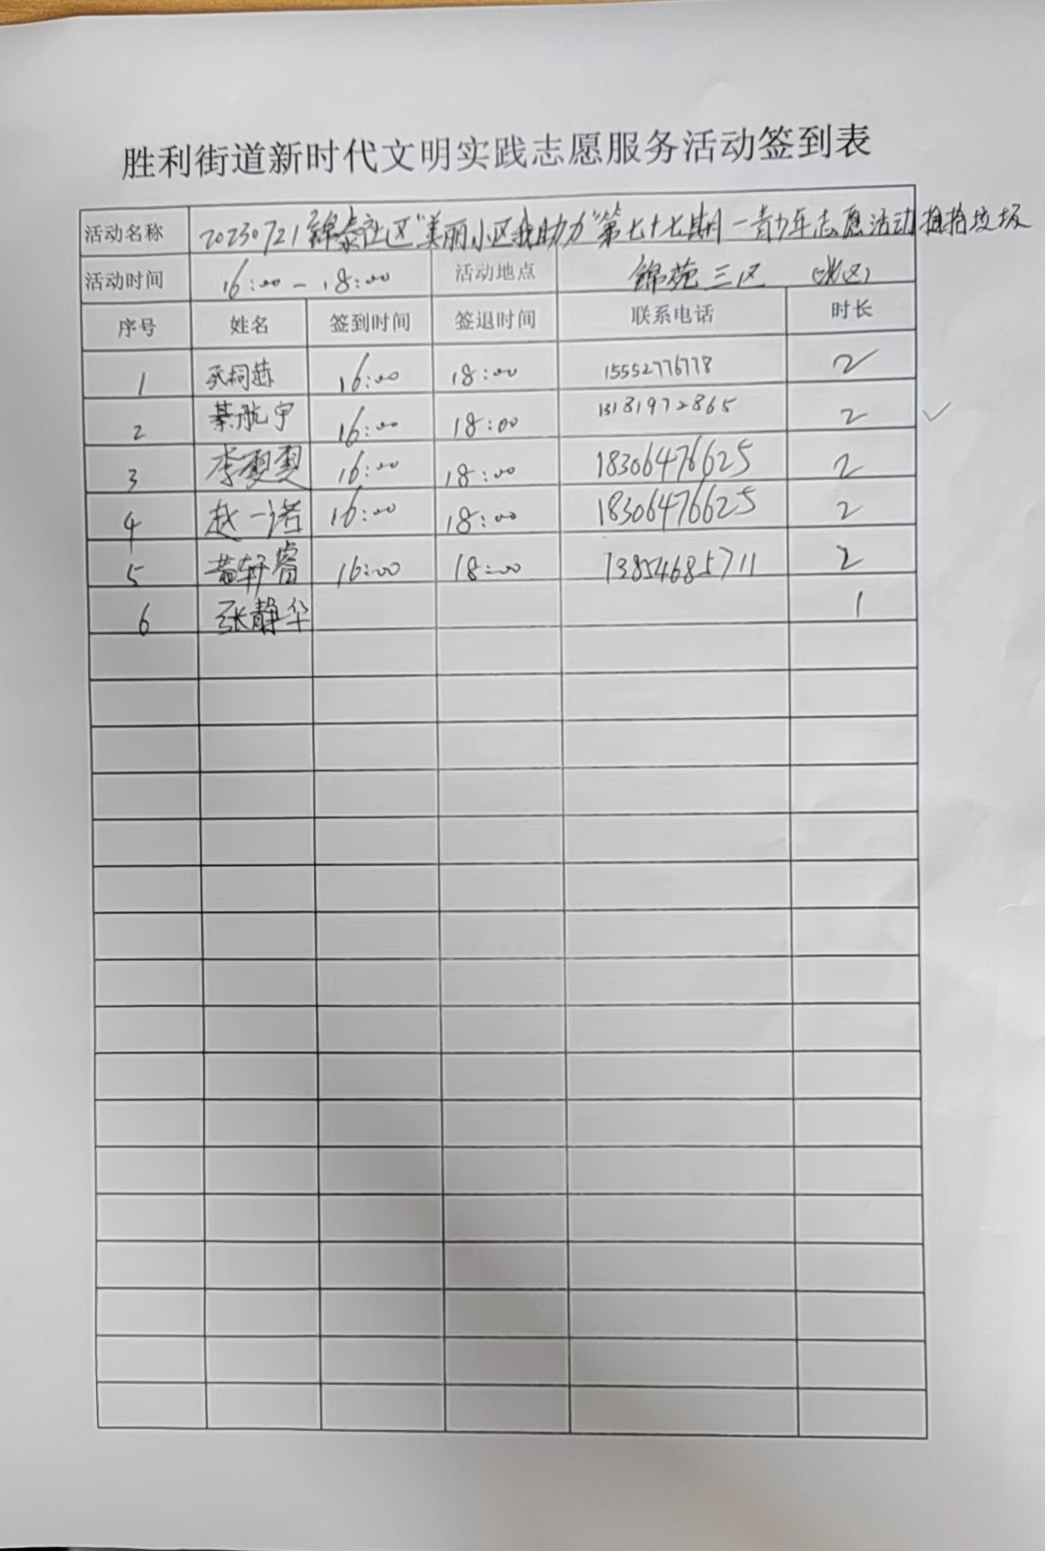 胜利街道新时代文明实践志愿服务活动签到表
活动名称 20230721锦泰社区"美丽小区我助力"第七十七期-青少年志愿活动捡拾垃圾
活动时间 16:00-18:00 活动地点 锦苑三区 (北区)
序号 姓名 签到时间 签退时间 联系电话 时长
1 16:00 18:00 15552776778 2
2 綦航宇 16:00 18:00 13181972865 2 ✓
3 李雯雯 16:00 18:00 18306476625 2
4 赵一诺 16:00 18:00 18306476625 2
5 轩睿 16:00 18:00 13854685711 2
6 张静华 1